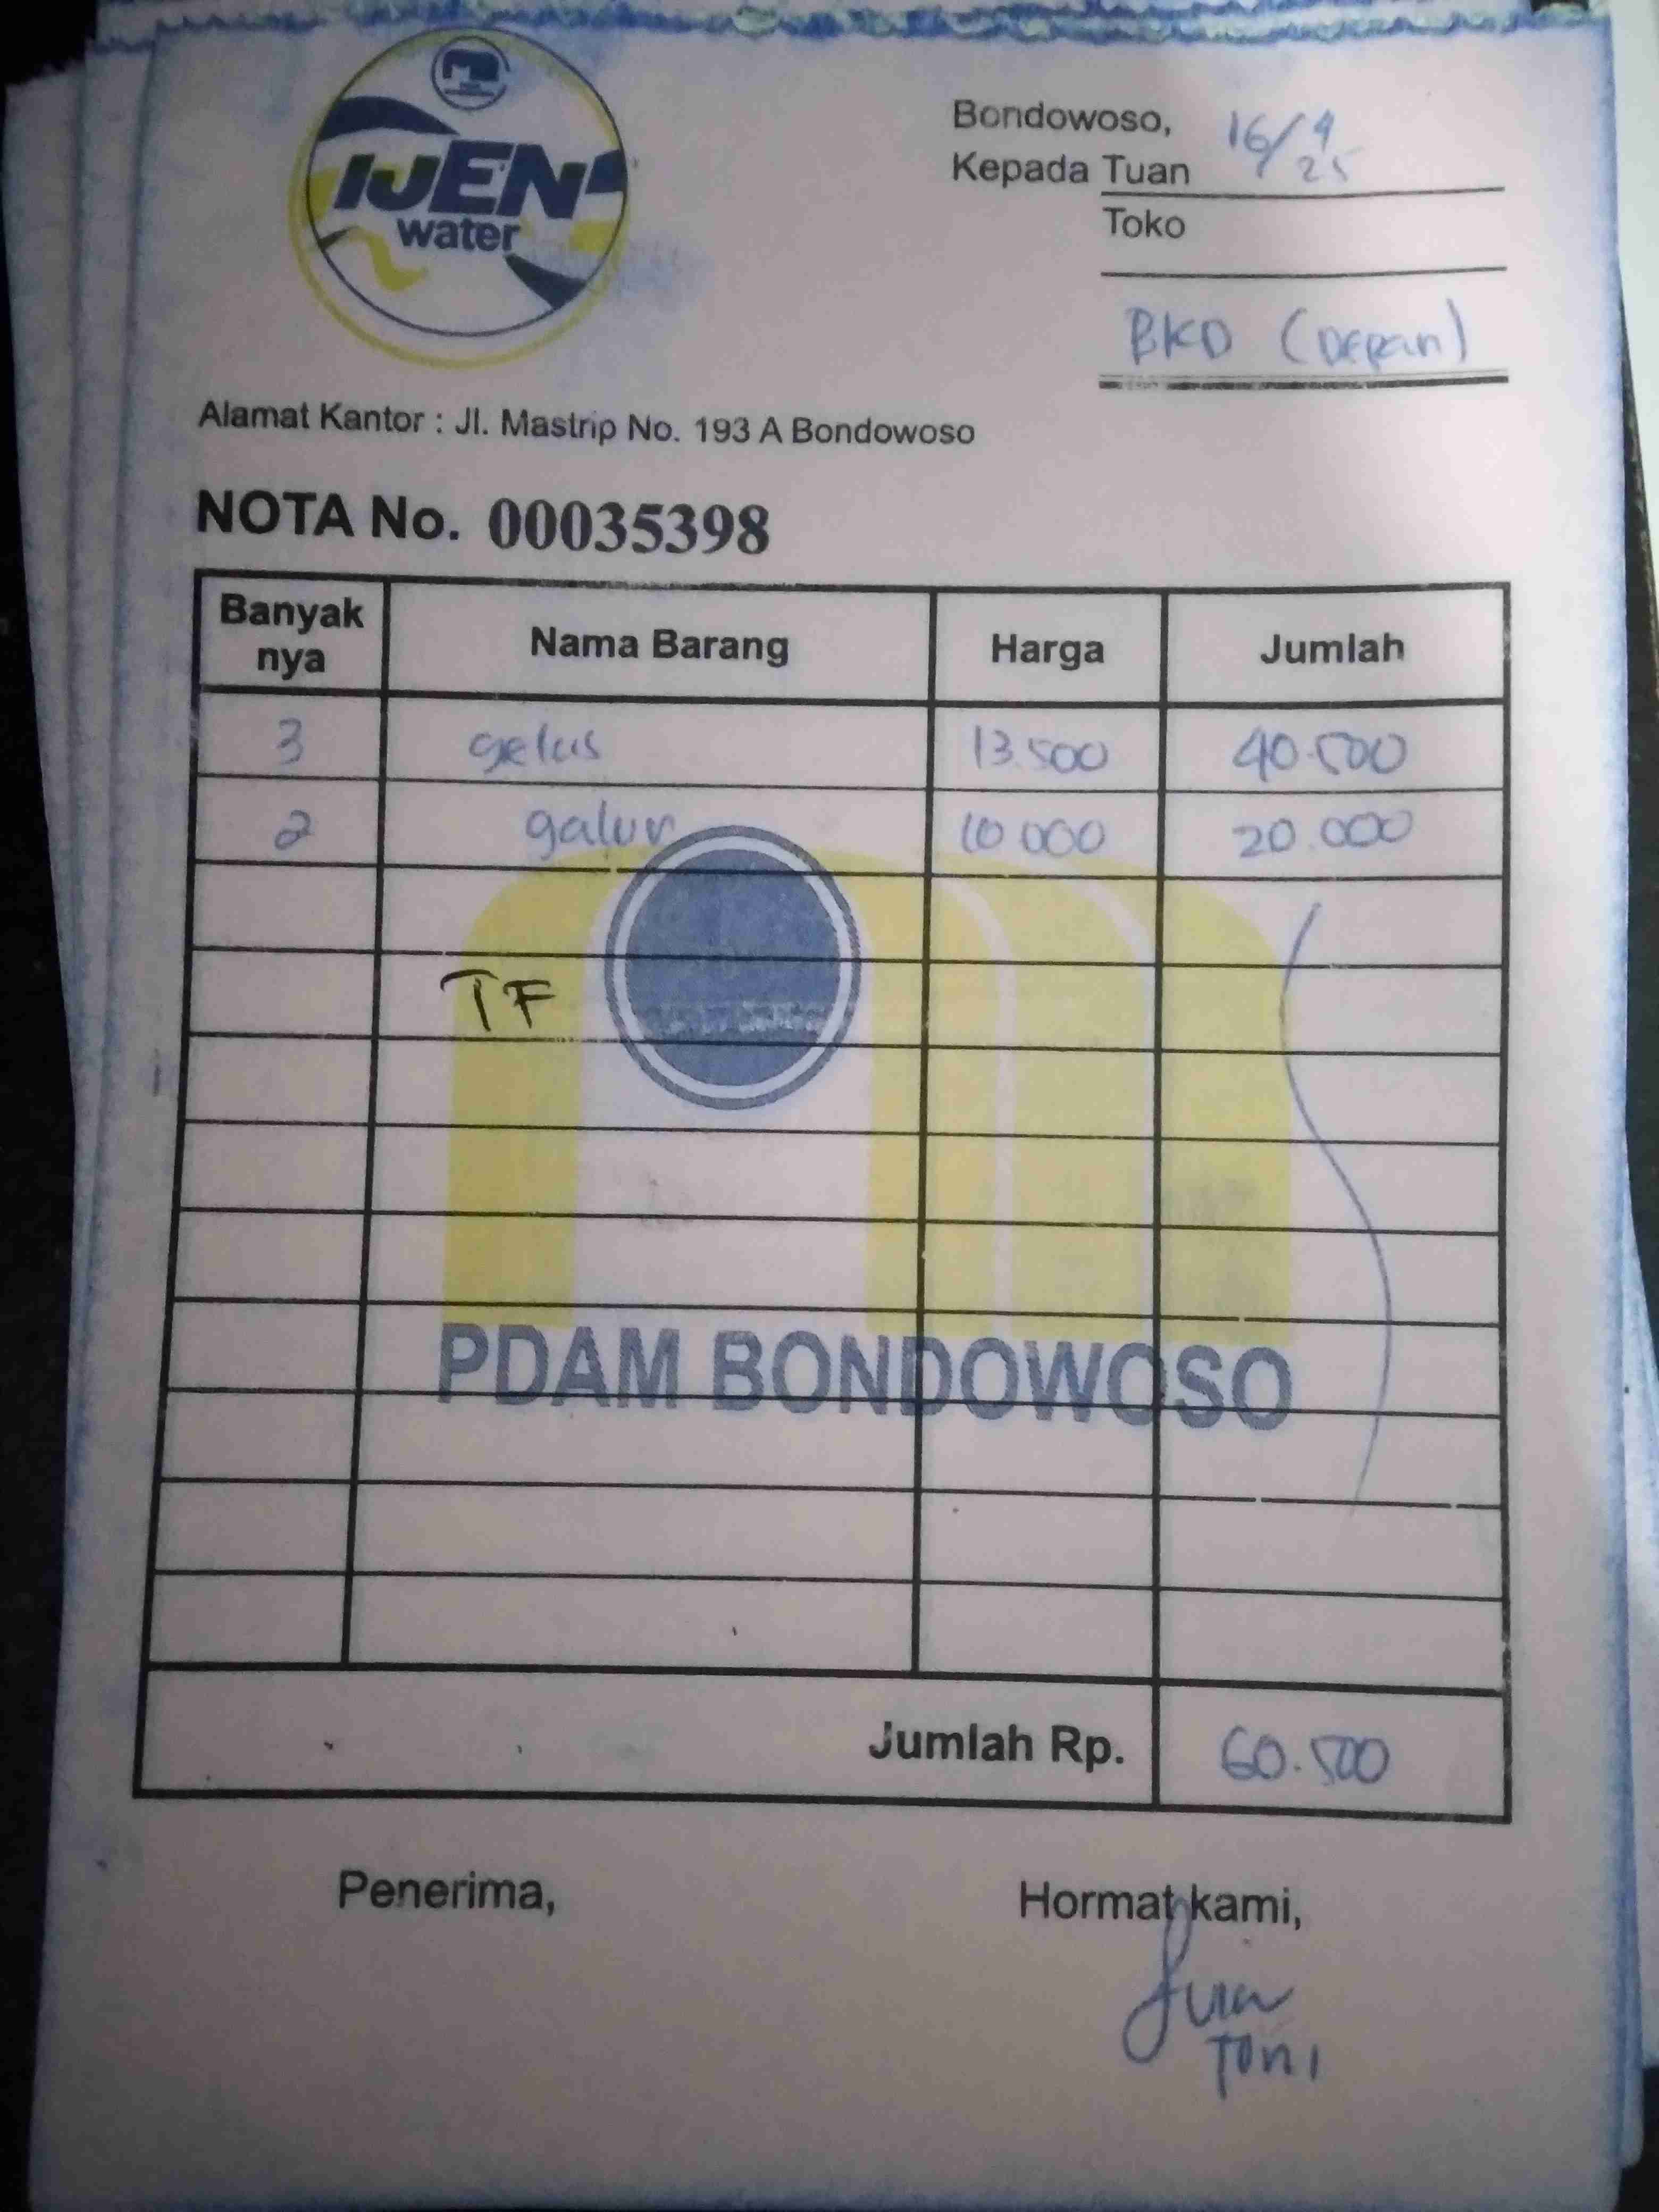 IJEN
water
Bondowoso, 16/4
25
Kepada Tuan
Toko
BKD (Depan)
Alamat Kantor : Jl. Mastrip No. 193 A Bondowoso
NOTA No. 00035398
Banyak nya Nama Barang Harga Jumlah
3 gelas 13.500 40.500
2 galon 10 000 20.000
TF
PDAM BONDOWOSO
Jumlah Rp. 60.500
Penerima, Hormat kami,
Toni